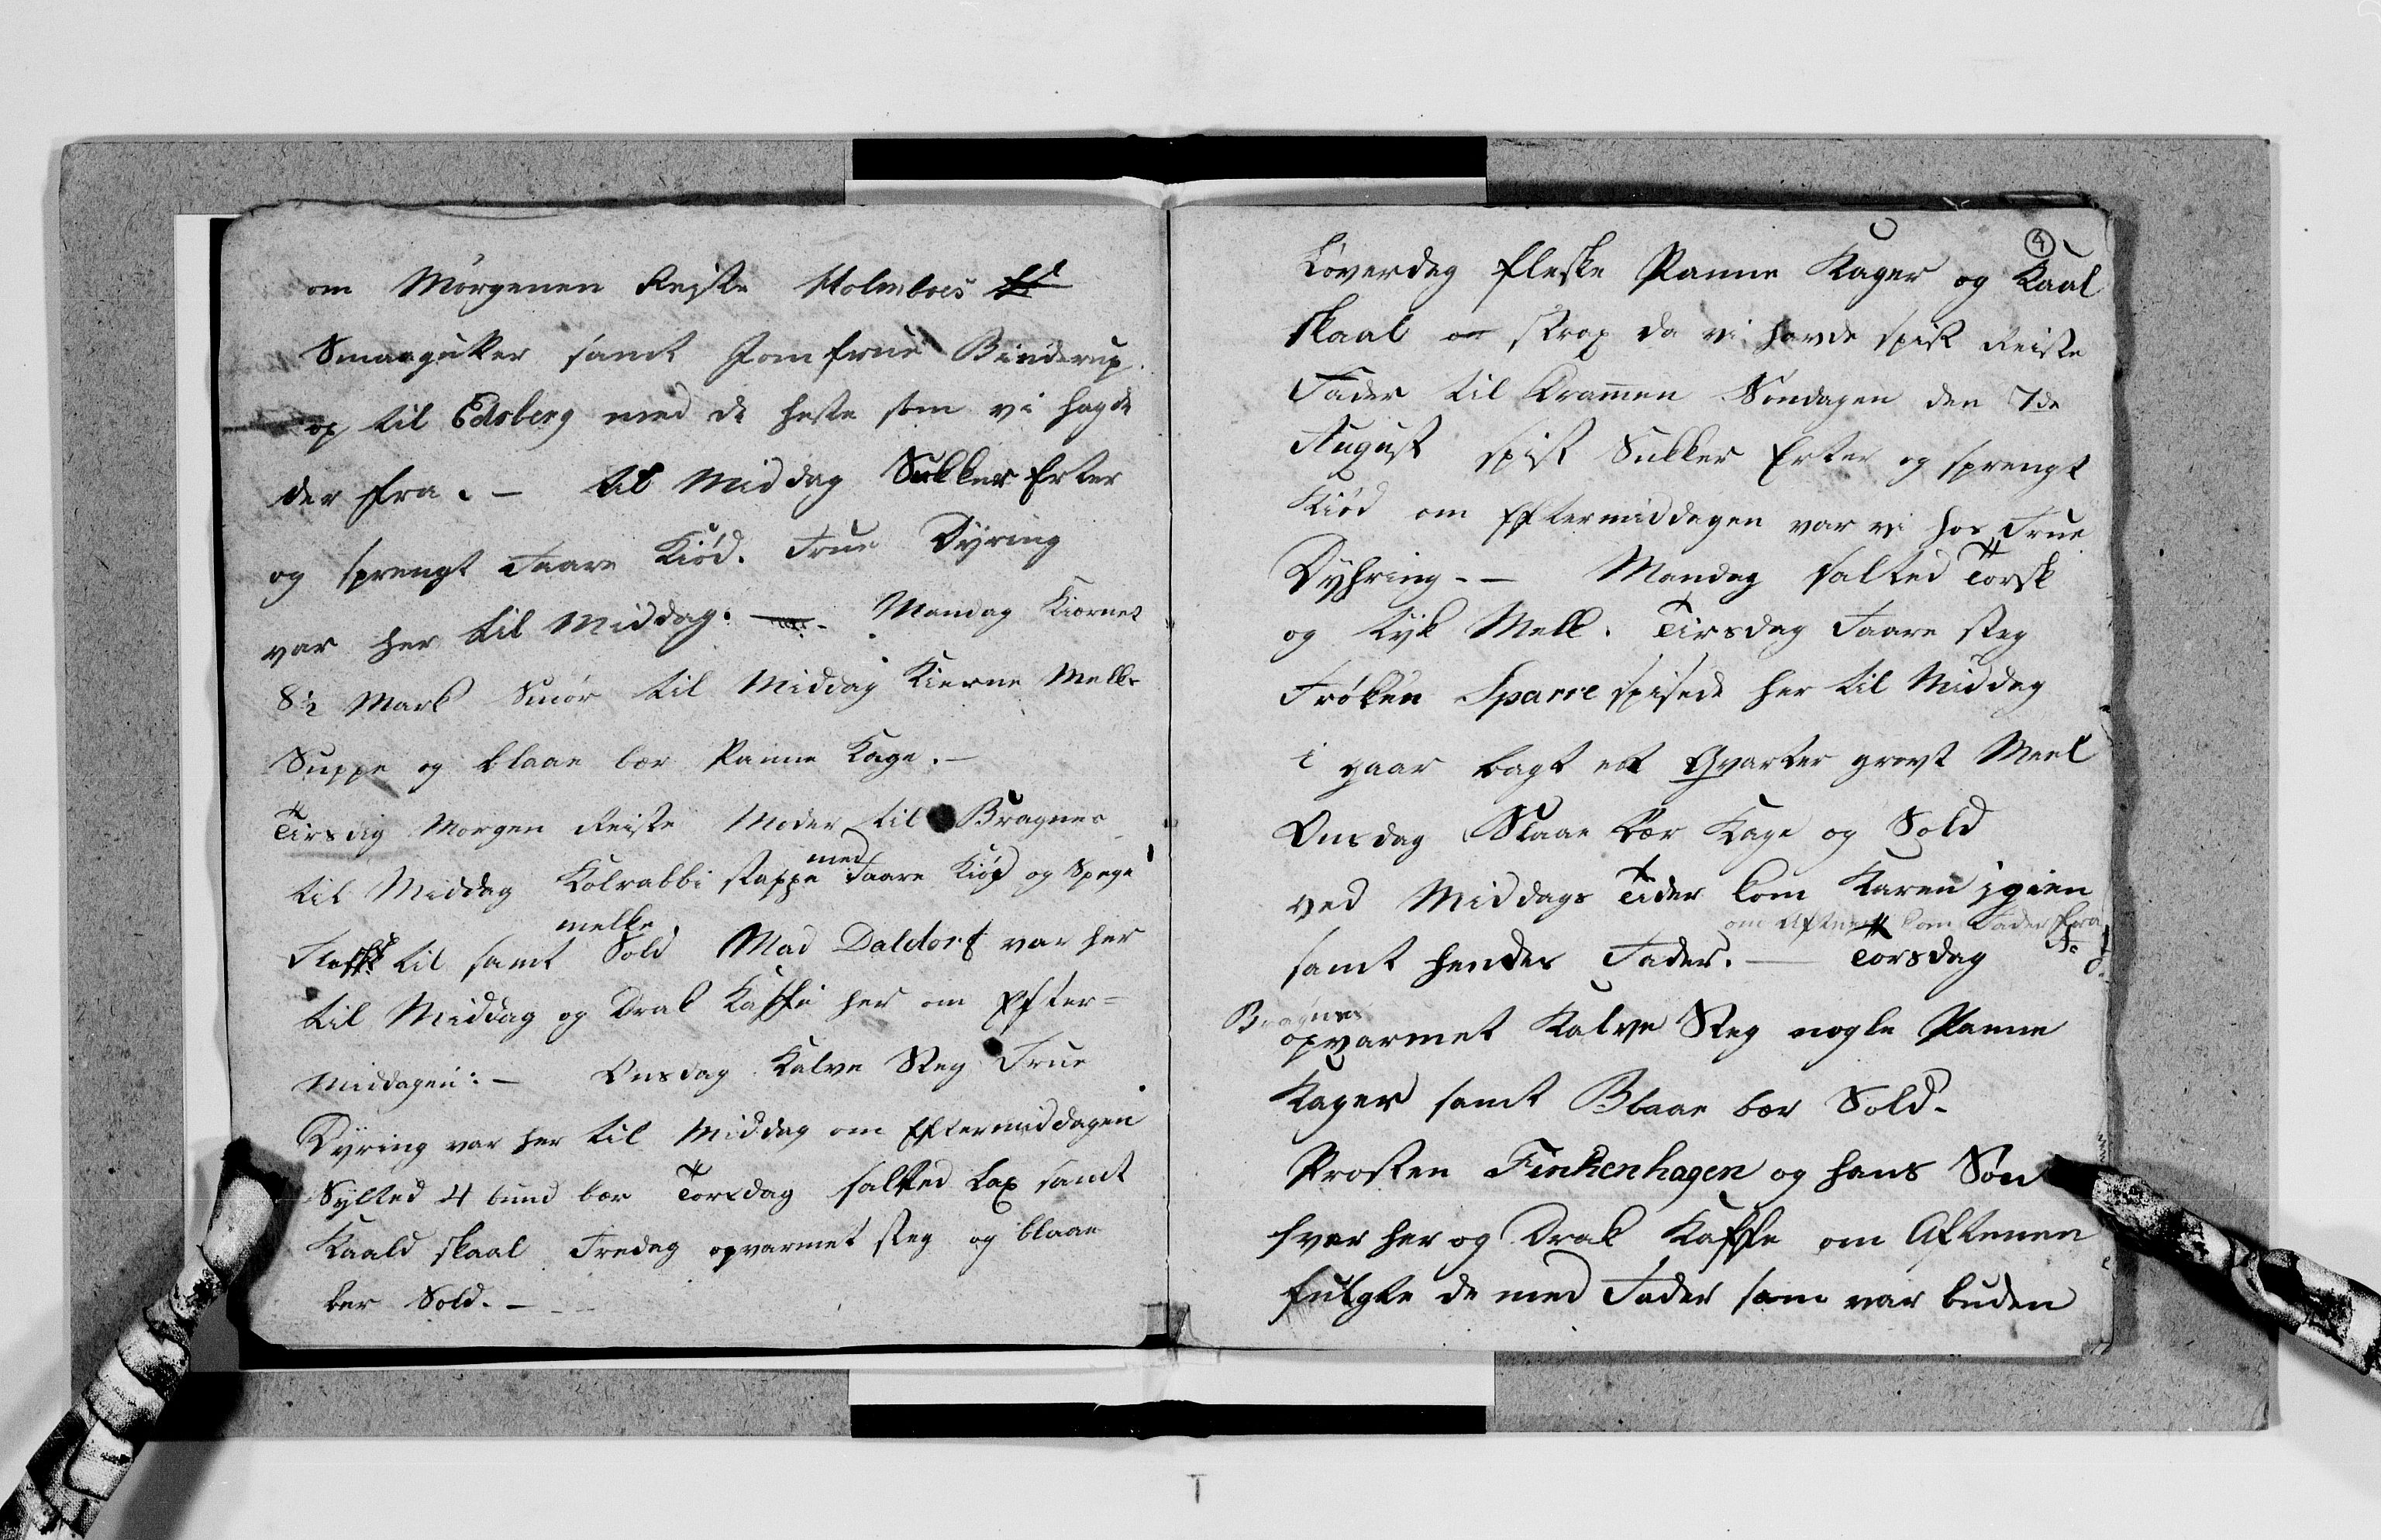 om Morgenen Reiste Holmboes
Smaagutter samt Jomfrue Binderup
op til Edsberg med de heste som vi hagde
der fra. – til Middag Sukker Erter
og sprengt Faare Kiød. Frue Dÿring
var her til Middag. – Mandag Kiærnet
8½ Mark Smør til Middag Kierne Melks
Suppe og blaae bær Panne Kage. –
Tirsdag Morgen Reiste Moder til Bragnes
til Middag Kolrabbi stappe med Faare Kiød og Spege
Flesk til samt melke Sold Mad Daldorf var her
til Middag og Drak Kaffe her om Efter=
middagen: – Onsdag Kalve Steg Frue
Dÿring var her til Middag om Eftermiddagen
Sÿlted 4 bund bær Torsdag salted Lax samt
Kaald skaal Fredag opvarmet steg og blaae
bær Sold. –
4
Løverdag fleske Panne Kager og Kaal
skaal strax da vi havde spist Reiste
Fader til Drammen Søndagen den 7de
August spist Sukker Erter og sprengt
Kiød om Eftermiddagen var vi hos Frue
Dÿhring. – Mandag salted Torsk
og tÿk Melk. Tirsdag Faare steg
Frøken Sparre spisede her til Middag
i gaar bagt et Qvarter grovt Meel
Onsdag Blaae bær Kage og Sold
ved Middags Tider kom Karen igien
om Aftenen kom Fader fra
samt hendes Fader. – Torsdag
Bragnes
opvarmet Kalve Steg nogle Panne
Kager samt Blaae bær Sold.
Prosten Finkenhagen og hans Søn
var her og Drak Kaffe om Aftenen
fulgte de med Fader som var buden